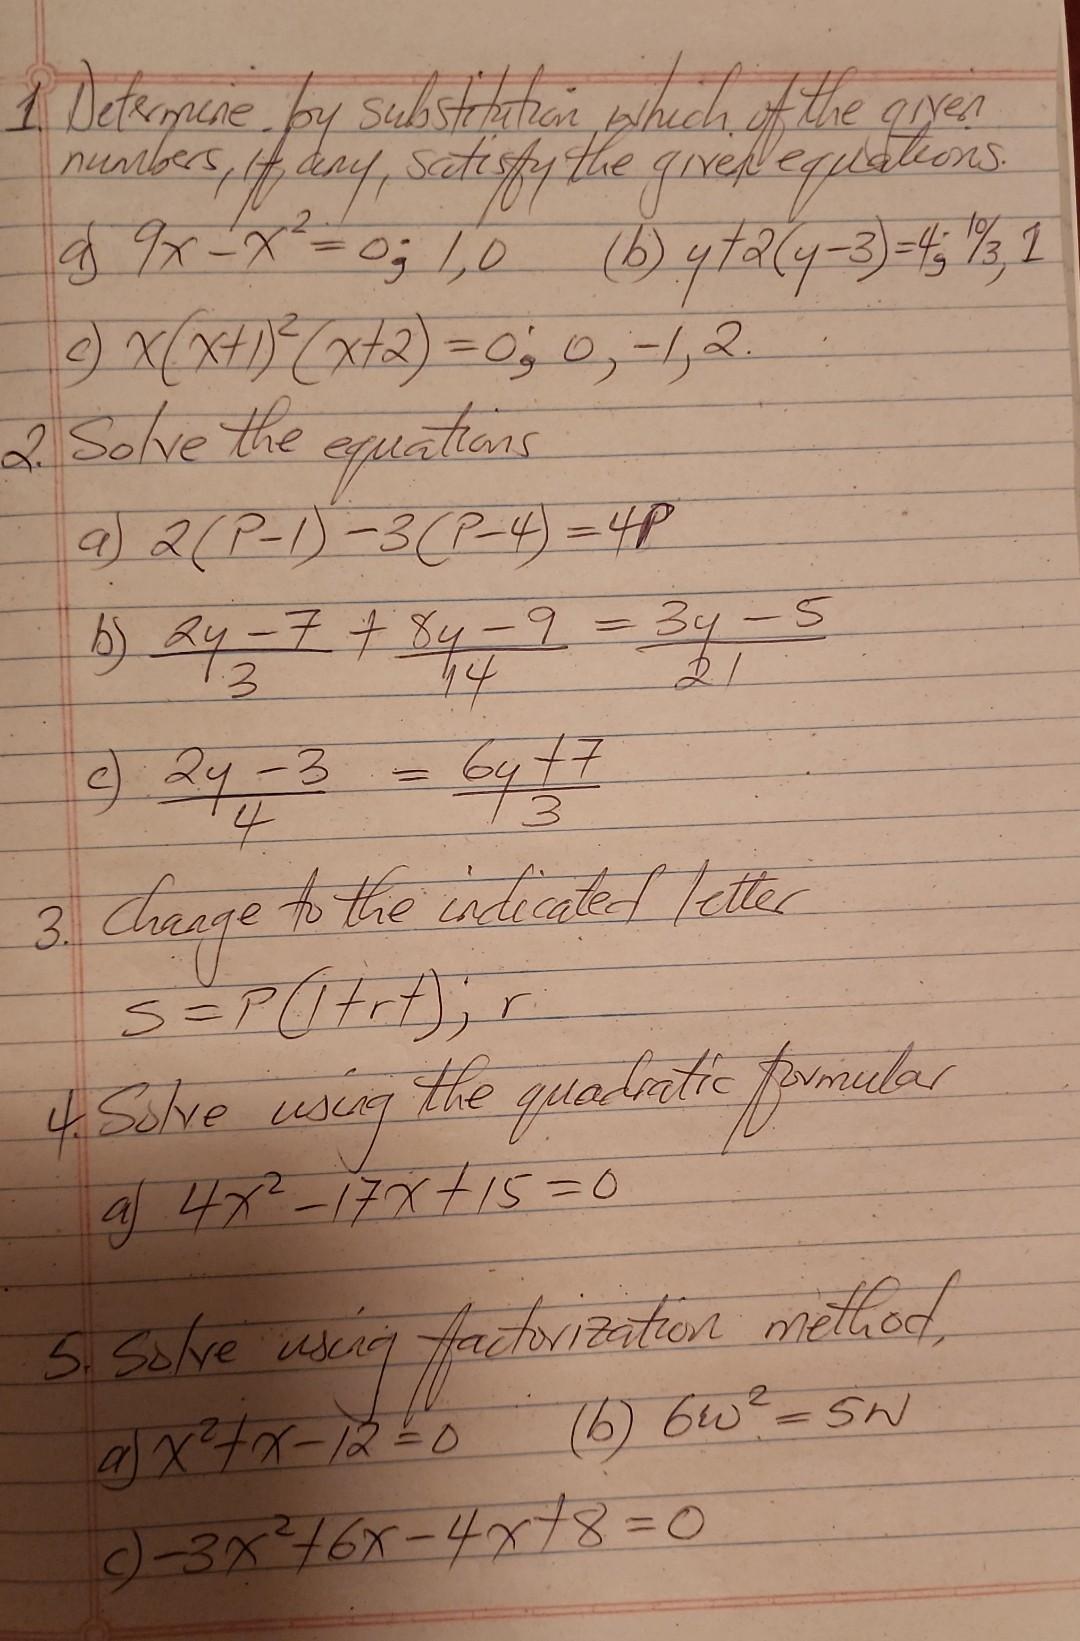 1. Determine by substitution which of the given
numbers, if any, satisfy the given equations.
a) 9x - x² = 0; 1, 0 (b) y+2(y-3)=4; 10/3, 1
c) x(x+1)²(x+2) = 0; 0, -1, 2.
2. Solve the equations
a) 2(P-1) - 3(P-4) = 4P
b) (2y - 7)/3 + (8y - 9)/14 = (3y - 5)/21
c) (2y - 3)/4 = (6y + 7)/3
3. Change to the indicated letter
S = P(1+rt); r
4. Solve using the quadratic formular
a) 4x² - 17x + 15 = 0
5. Solve using factorization method,
a) x² + x - 12 = 0 (b) 6w² = 5w
c) -3x² + 6x - 4x + 8 = 0